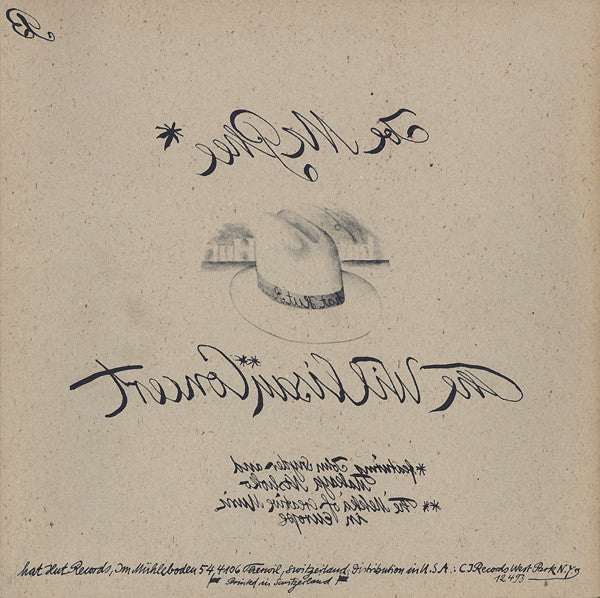 B
Joe McPhee *
hat Hut R
The Willisau Concert **
*featuring John Snyder and
Makaya Ntshoko
** The Mekka of Creative Music
in Europe
hat Hut Records, Im Mühleboden 54, 4106 Therwil, Switzerland, distribution in U.S.A.: CJRecords West Park N.Y.
Printed in Switzerland 12493